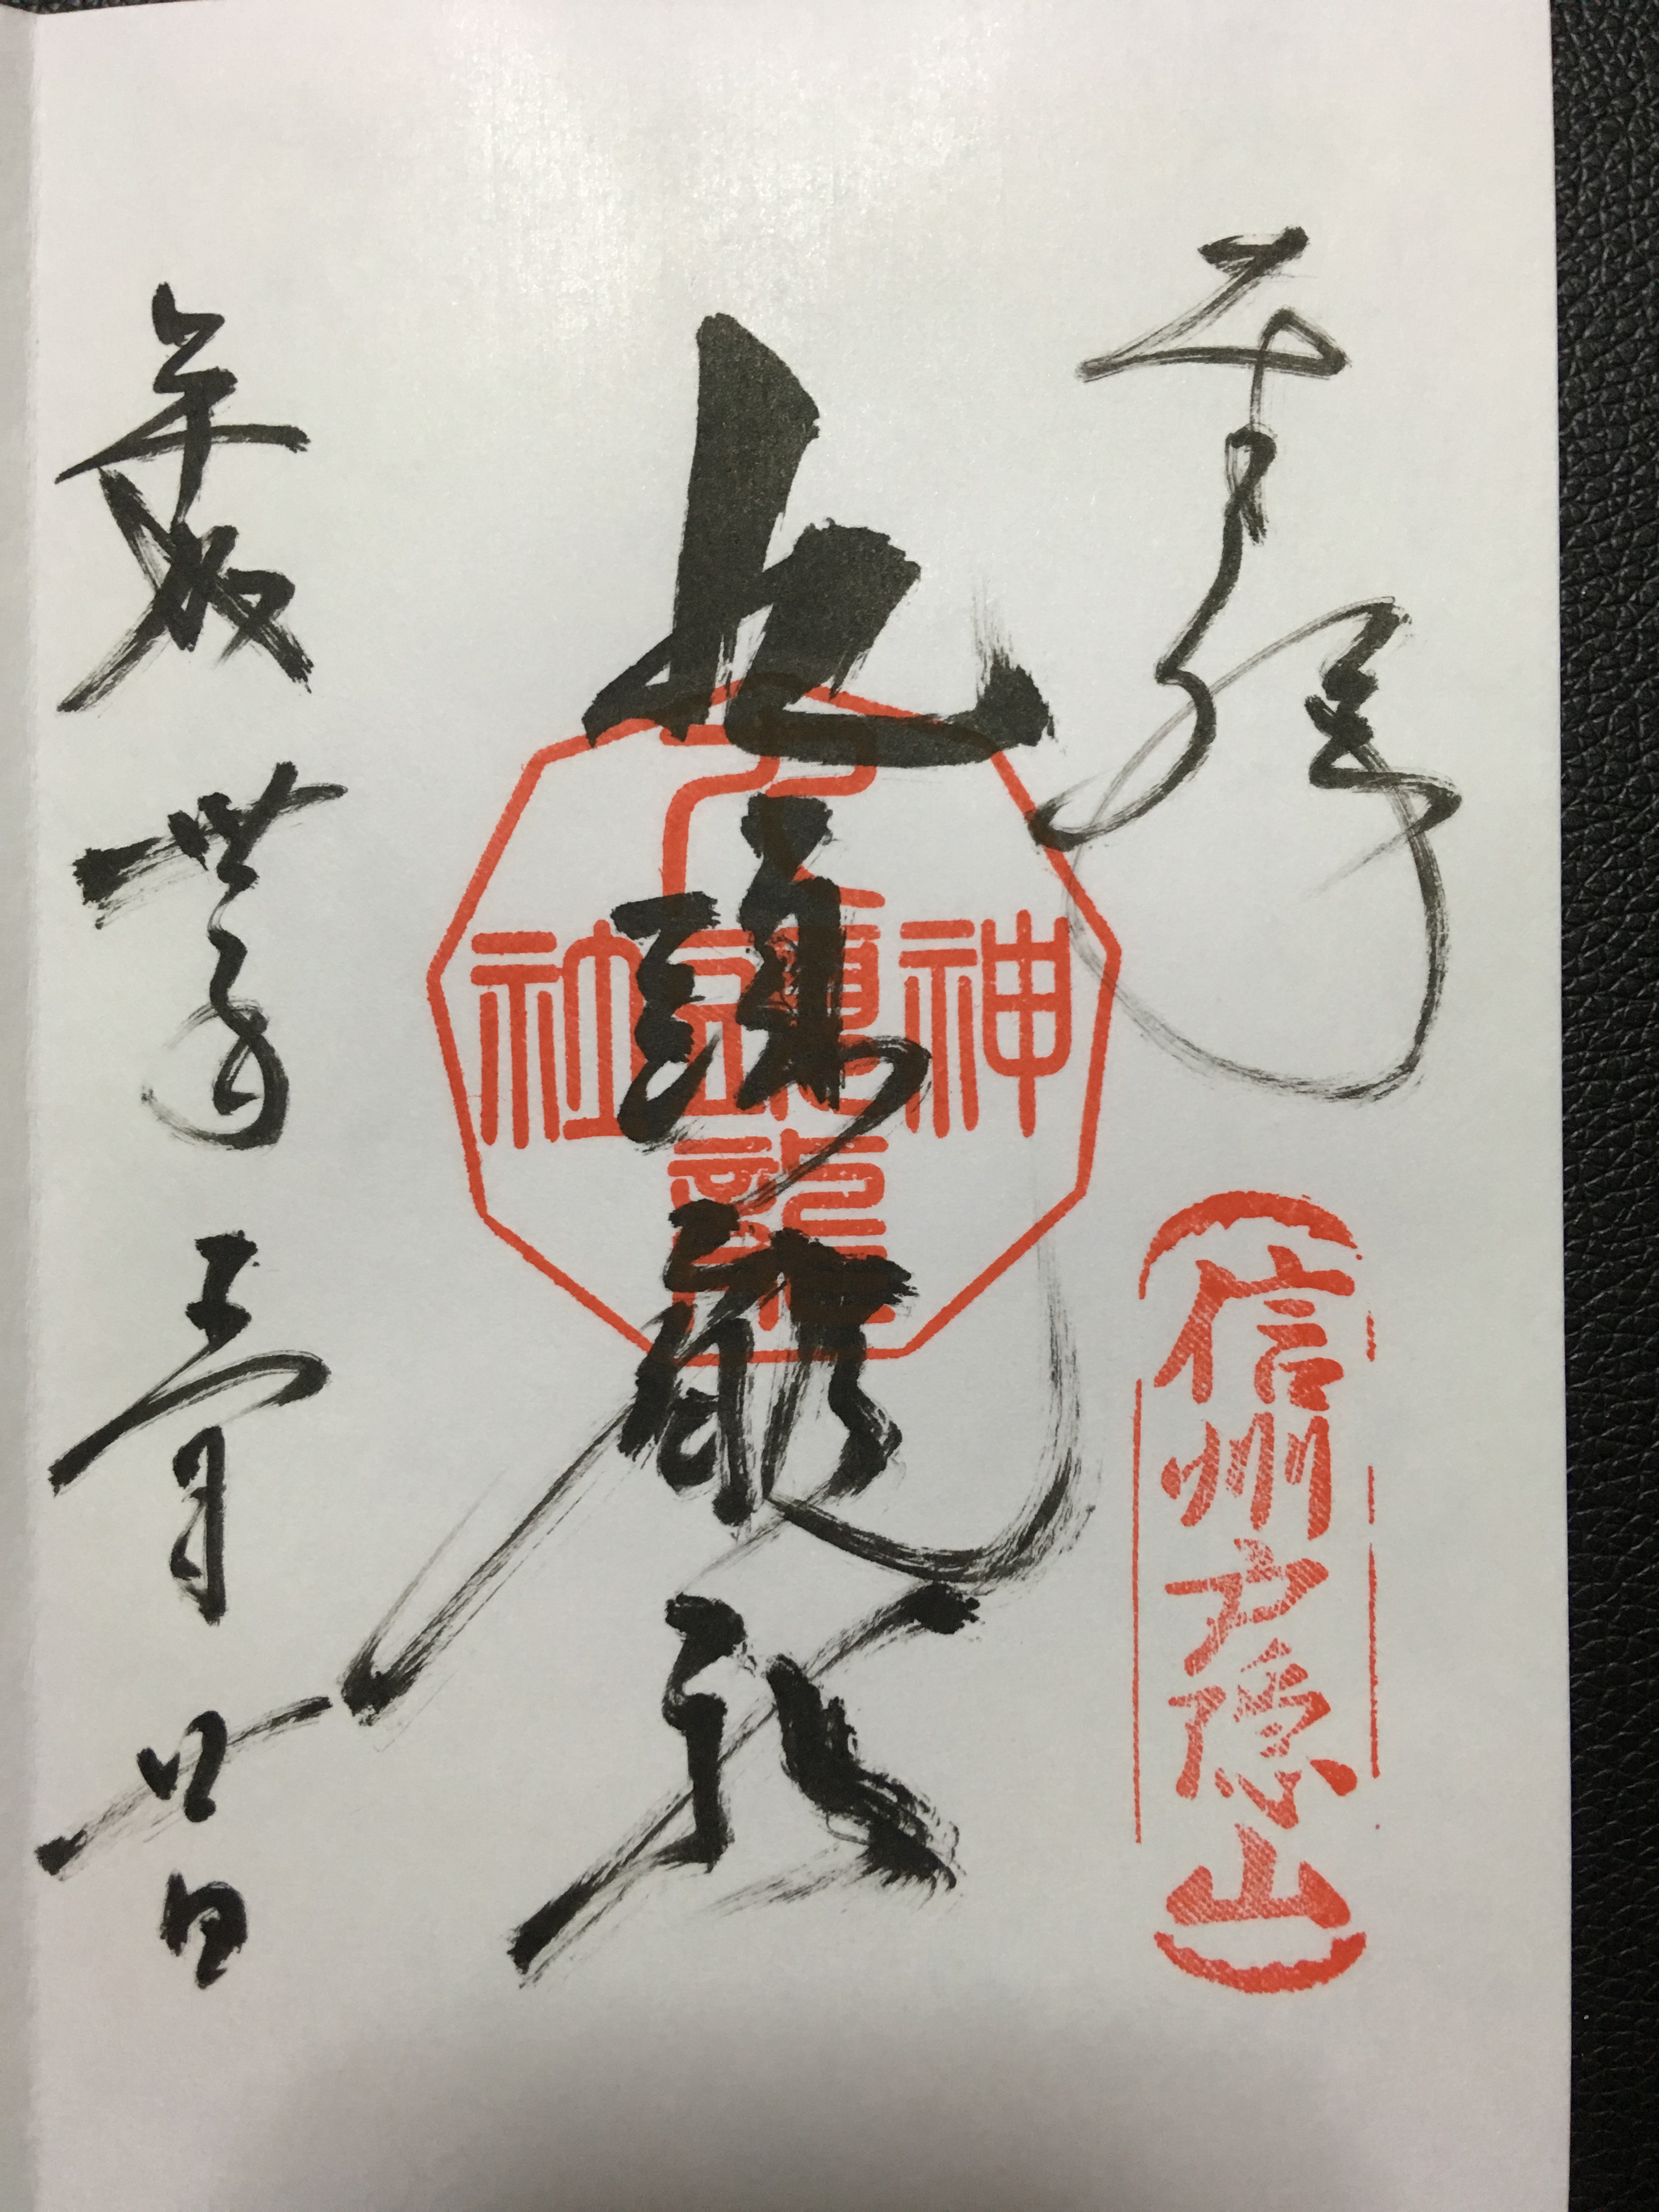 奉拝
信州戸隠山
九頭龍社
九頭龍神社
平成卅年五月廿日